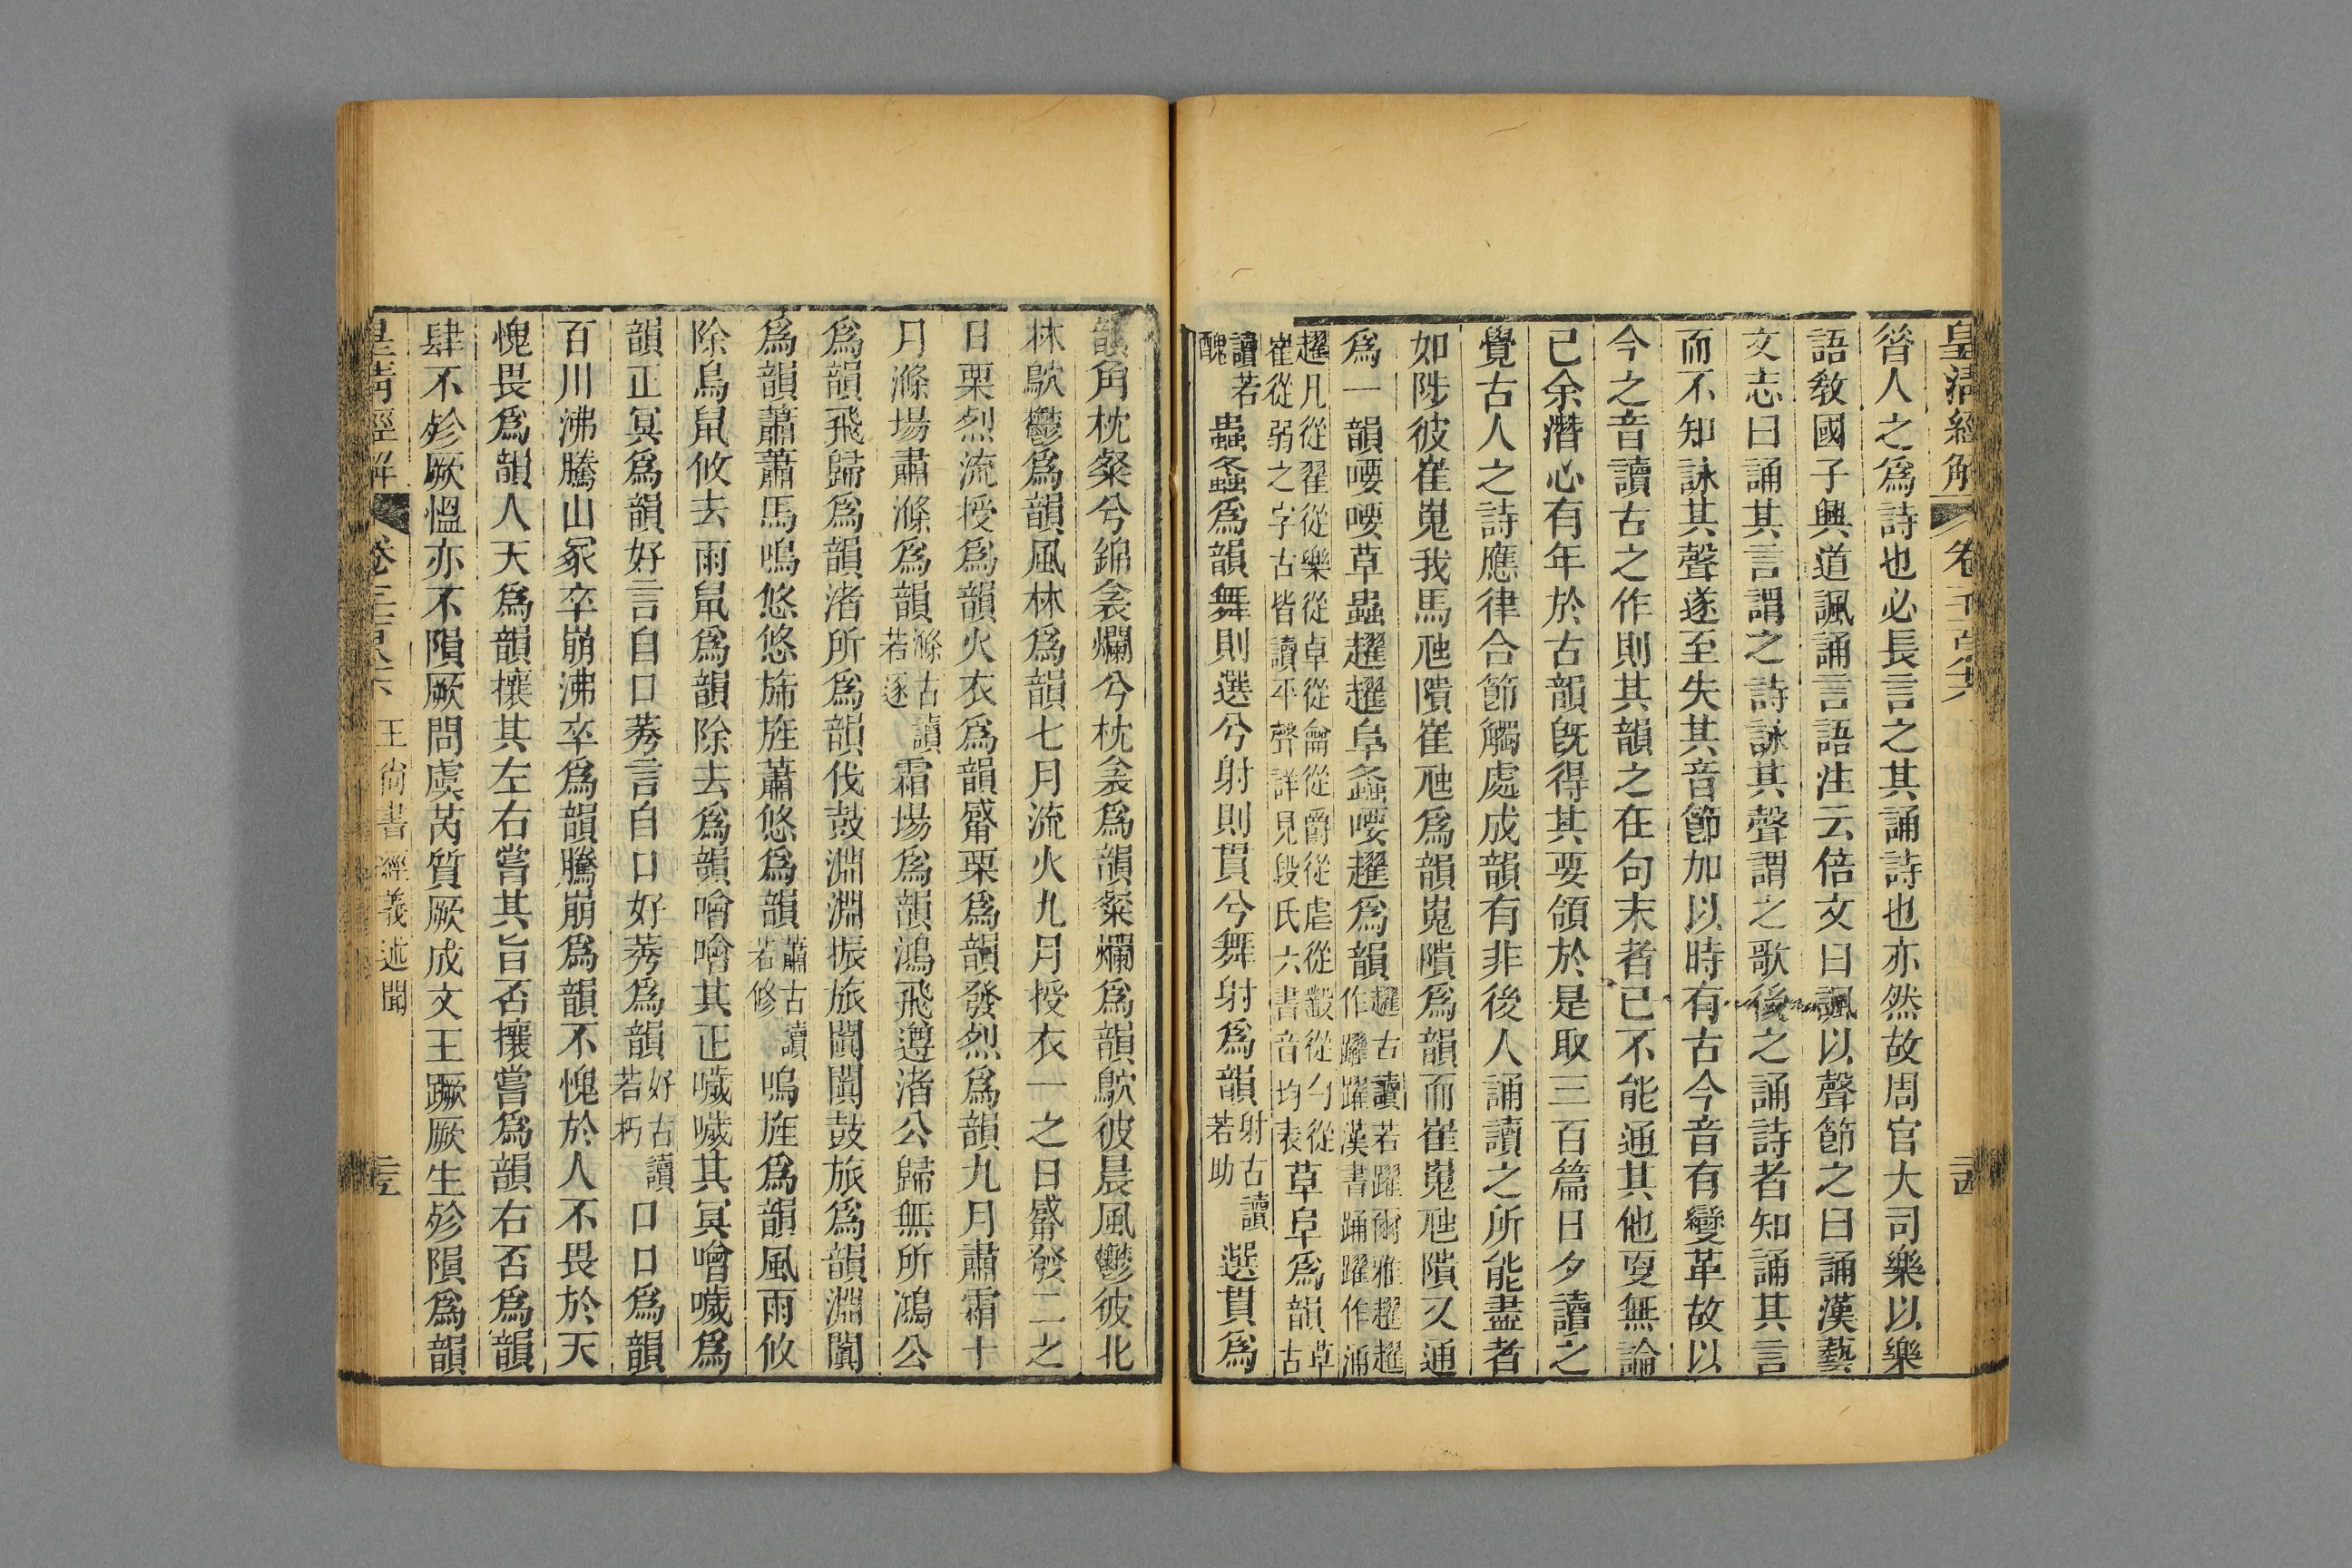 皇清經解 卷
昝人之爲詩也必長言之其誦詩也亦然故周官大司樂以樂
語敎國子興道諷誦言語注云倍文曰諷以聲節之曰誦漢藝
文志曰誦其言謂之詩詠其聲謂之歌後之誦詩者知誦其言
而不知詠其聲遂至失其音節加以時有古今音有變革故以
今之音讀古之作則其韻之在句末者已不能通其他更無論
已余潛心有年於古韻旣得其要領於是取三百篇日夕讀之
覺古人之詩應律合節觸處成韻有非後人誦讀之所能盡者
如陟彼崔嵬我馬虺隤崔虺爲韻嵬隤爲韻而崔嵬虺隤又通
爲一韻喓喓草蟲趯趯阜螽喓趯爲韻趯古讀若躍爾雅趯趯作躍躍漢書踊躍作涌
趯凡從翟從樂從卓從龠從爵從虐從鑿從勺從崔從弱之字古皆讀平聲詳見段氏六書音均表草阜爲韻草古
讀若醜蟲螽爲韻舞則選兮射則貫兮舞射爲韻射古讀若助選貫爲
韻角枕粲兮錦衾爛兮枕衾爲韻粲爛爲韻鴥彼晨風鬱彼北
林鴥鬱爲韻風林爲韻七月流火九月授衣一之日觱發二之
日栗烈流授爲韻火衣爲韻觱栗爲韻發烈爲韻九月肅霜十
月滌場肅滌爲韻滌古讀若逐霜場爲韻鴻飛遵渚公歸無所鴻公
爲韻飛歸爲韻渚所爲韻伐鼓淵淵振旅闐闐鼓旅爲韻淵闐
爲韻蕭蕭馬鳴悠悠旆旌蕭悠爲韻蕭古讀若修鳴旌爲韻風雨攸
除鳥鼠攸去雨鼠爲韻除去爲韻噲噲其正噦噦其冥噲噦爲
韻正冥爲韻好言自口莠言自口好莠爲韻好古讀若朽口口爲韻
百川沸騰山冢卒崩沸卒爲韻騰崩爲韻不愧於人不畏於天
愧畏爲韻人天爲韻攘其左右嘗其旨否攘嘗爲韻右否爲韻
肆不殄厥慍亦不隕厥問虞芮質厥成文王蹶厥生殄隕爲韻
皇清經解 卷 王尚書經義述聞